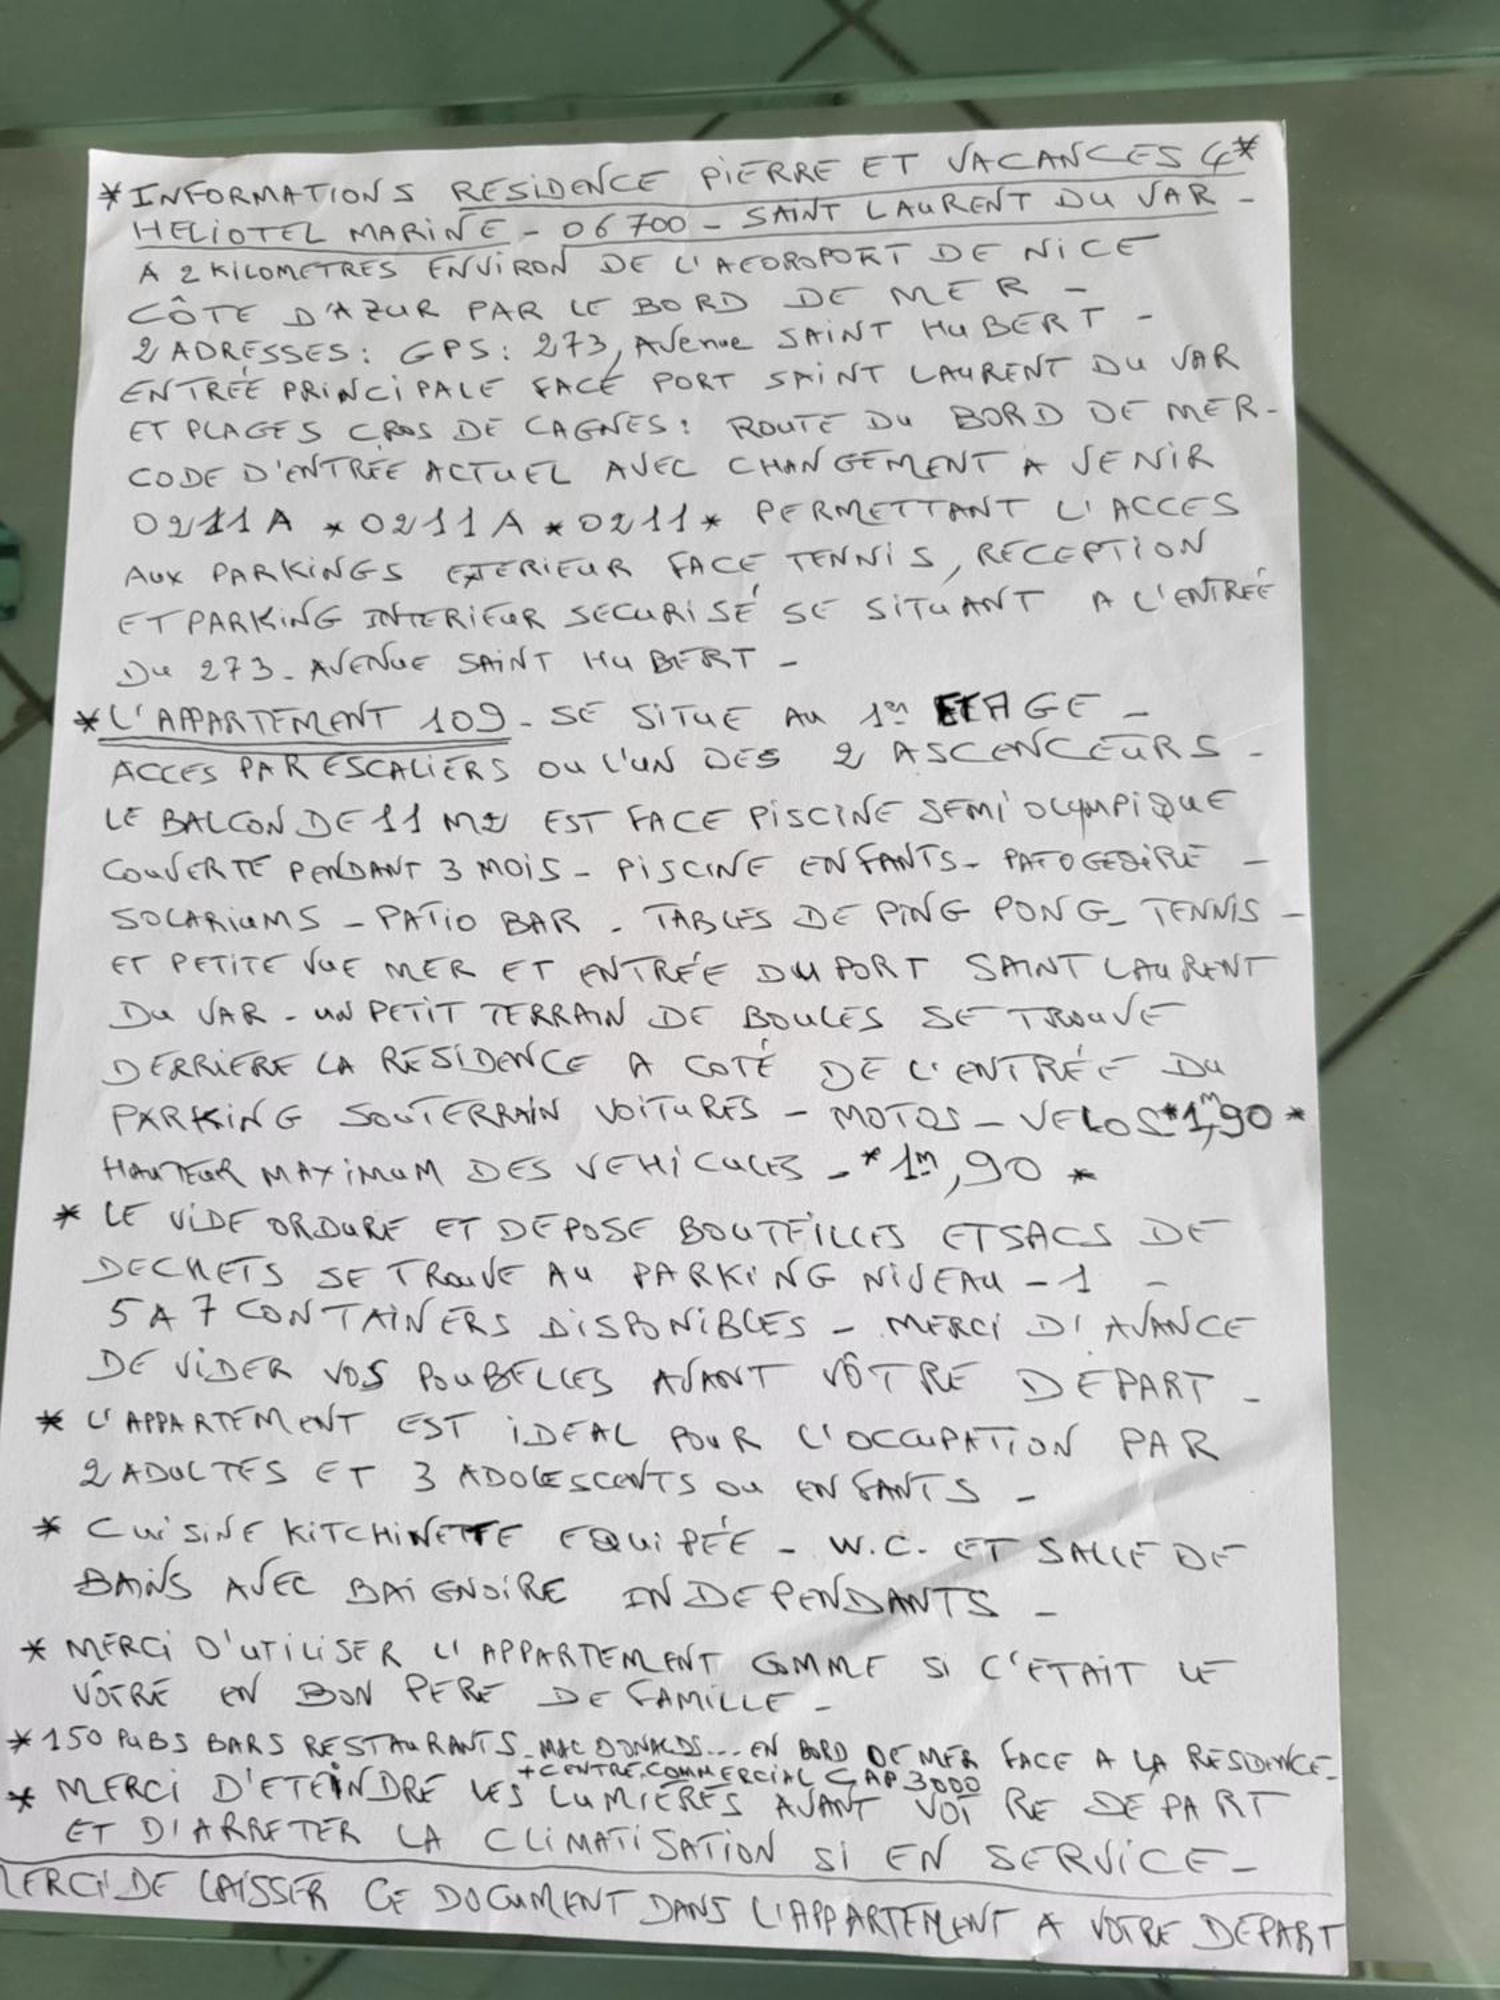 *INFORMATIONS RESIDENCE PIERRE ET VACANCES 4*
HELIOTEL MARINE - 06700 - SAINT LAURENT DU VAR -
A 2 KILOMETRES ENVIRON DE L'AEOROPORT DE NICE
CÔTE D'AZUR PAR LE BORD DE MER -
2 ADRESSES : GPS : 273, Avenue SAINT HUBERT -
ENTRÉE PRINCIPALE FACE PORT SAINT LAURENT DU VAR
ET PLAGES CROS DE CAGNES : ROUTE DU BORD DE MER -
CODE D'ENTRÉE ACTUEL AVEC CHANGEMENT A VENIR
0211A * 0211A * 0211 * PERMETTANT L'ACCES
AUX PARKINGS EXTERIEUR FACE TENNIS, RECEPTION
ET PARKING INTERIEUR SECURISÉ SE SITUANT A L'ENTRÉE
DU 273 - AVENUE SAINT HUBERT -
*L'APPARTEMENT 109 - SE SITUE AU 1er ETAGE -
ACCES PAR ESCALIERS OU L'UN DES 2 ASCENCEURS -
LE BALCON DE 11 M2 EST FACE PISCINE SEMI OLYMPIQUE
COUVERTE PENDANT 3 MOIS - PISCINE ENFANTS -
SOLARIUMS - PATIO BAR - TABLES DE PING PONG - TENNIS -
ET PETITE VUE MER ET ENTRÉE DU PORT SAINT LAURENT
DU VAR - UN PETIT TERRAIN DE BOULES SE TROUVE
DERRIERE LA RESIDENCE A COTÉ DE L'ENTRÉE DU
PARKING SOUTERRAIN VOITURES - MOTOS - VELOS *1m,90 *
HAUTEUR MAXIMUM DES VEHICULES - *1m,90 *
* LE VIDE ORDURE ET DEPOSE BOUTEILLES ET SACS DE
DECHETS SE TROUVE AU PARKING NIVEAU -1 -
5 A 7 CONTAINERS DISPONIBLES - MERCI D'AVANCE
DE VIDER VOS POUBELLES AVANT VÔTRE DEPART -
* L'APPARTEMENT EST IDEAL POUR L'OCCUPATION PAR
2 ADULTES ET 3 ADOLESCENTS OU ENFANTS -
* CUISINE KITCHINETTE EQUIPÉE - W.C. ET SALLE DE
BAINS AVEC BAIGNOIRE INDEPENDANTS -
* MERCI D'UTILISER L'APPARTEMENT COMME SI C'ETAIT LE
VÔTRE EN BON PERE DE FAMILLE -
* 150 PUBS BARS RESTAURANTS - MAC DONALDS... EN BORD DE MER FACE A LA RESIDENCE -
+ CENTRE COMMERCIAL CAP 3000
* MERCI D'ETEINDRE LES LUMIERES AVANT VOTRE DEPART
ET D'ARRETER LA CLIMATISATION SI EN SERVICE -
MERCI DE LAISSER CE DOCUMENT DANS L'APPARTEMENT A VOTRE DEPART